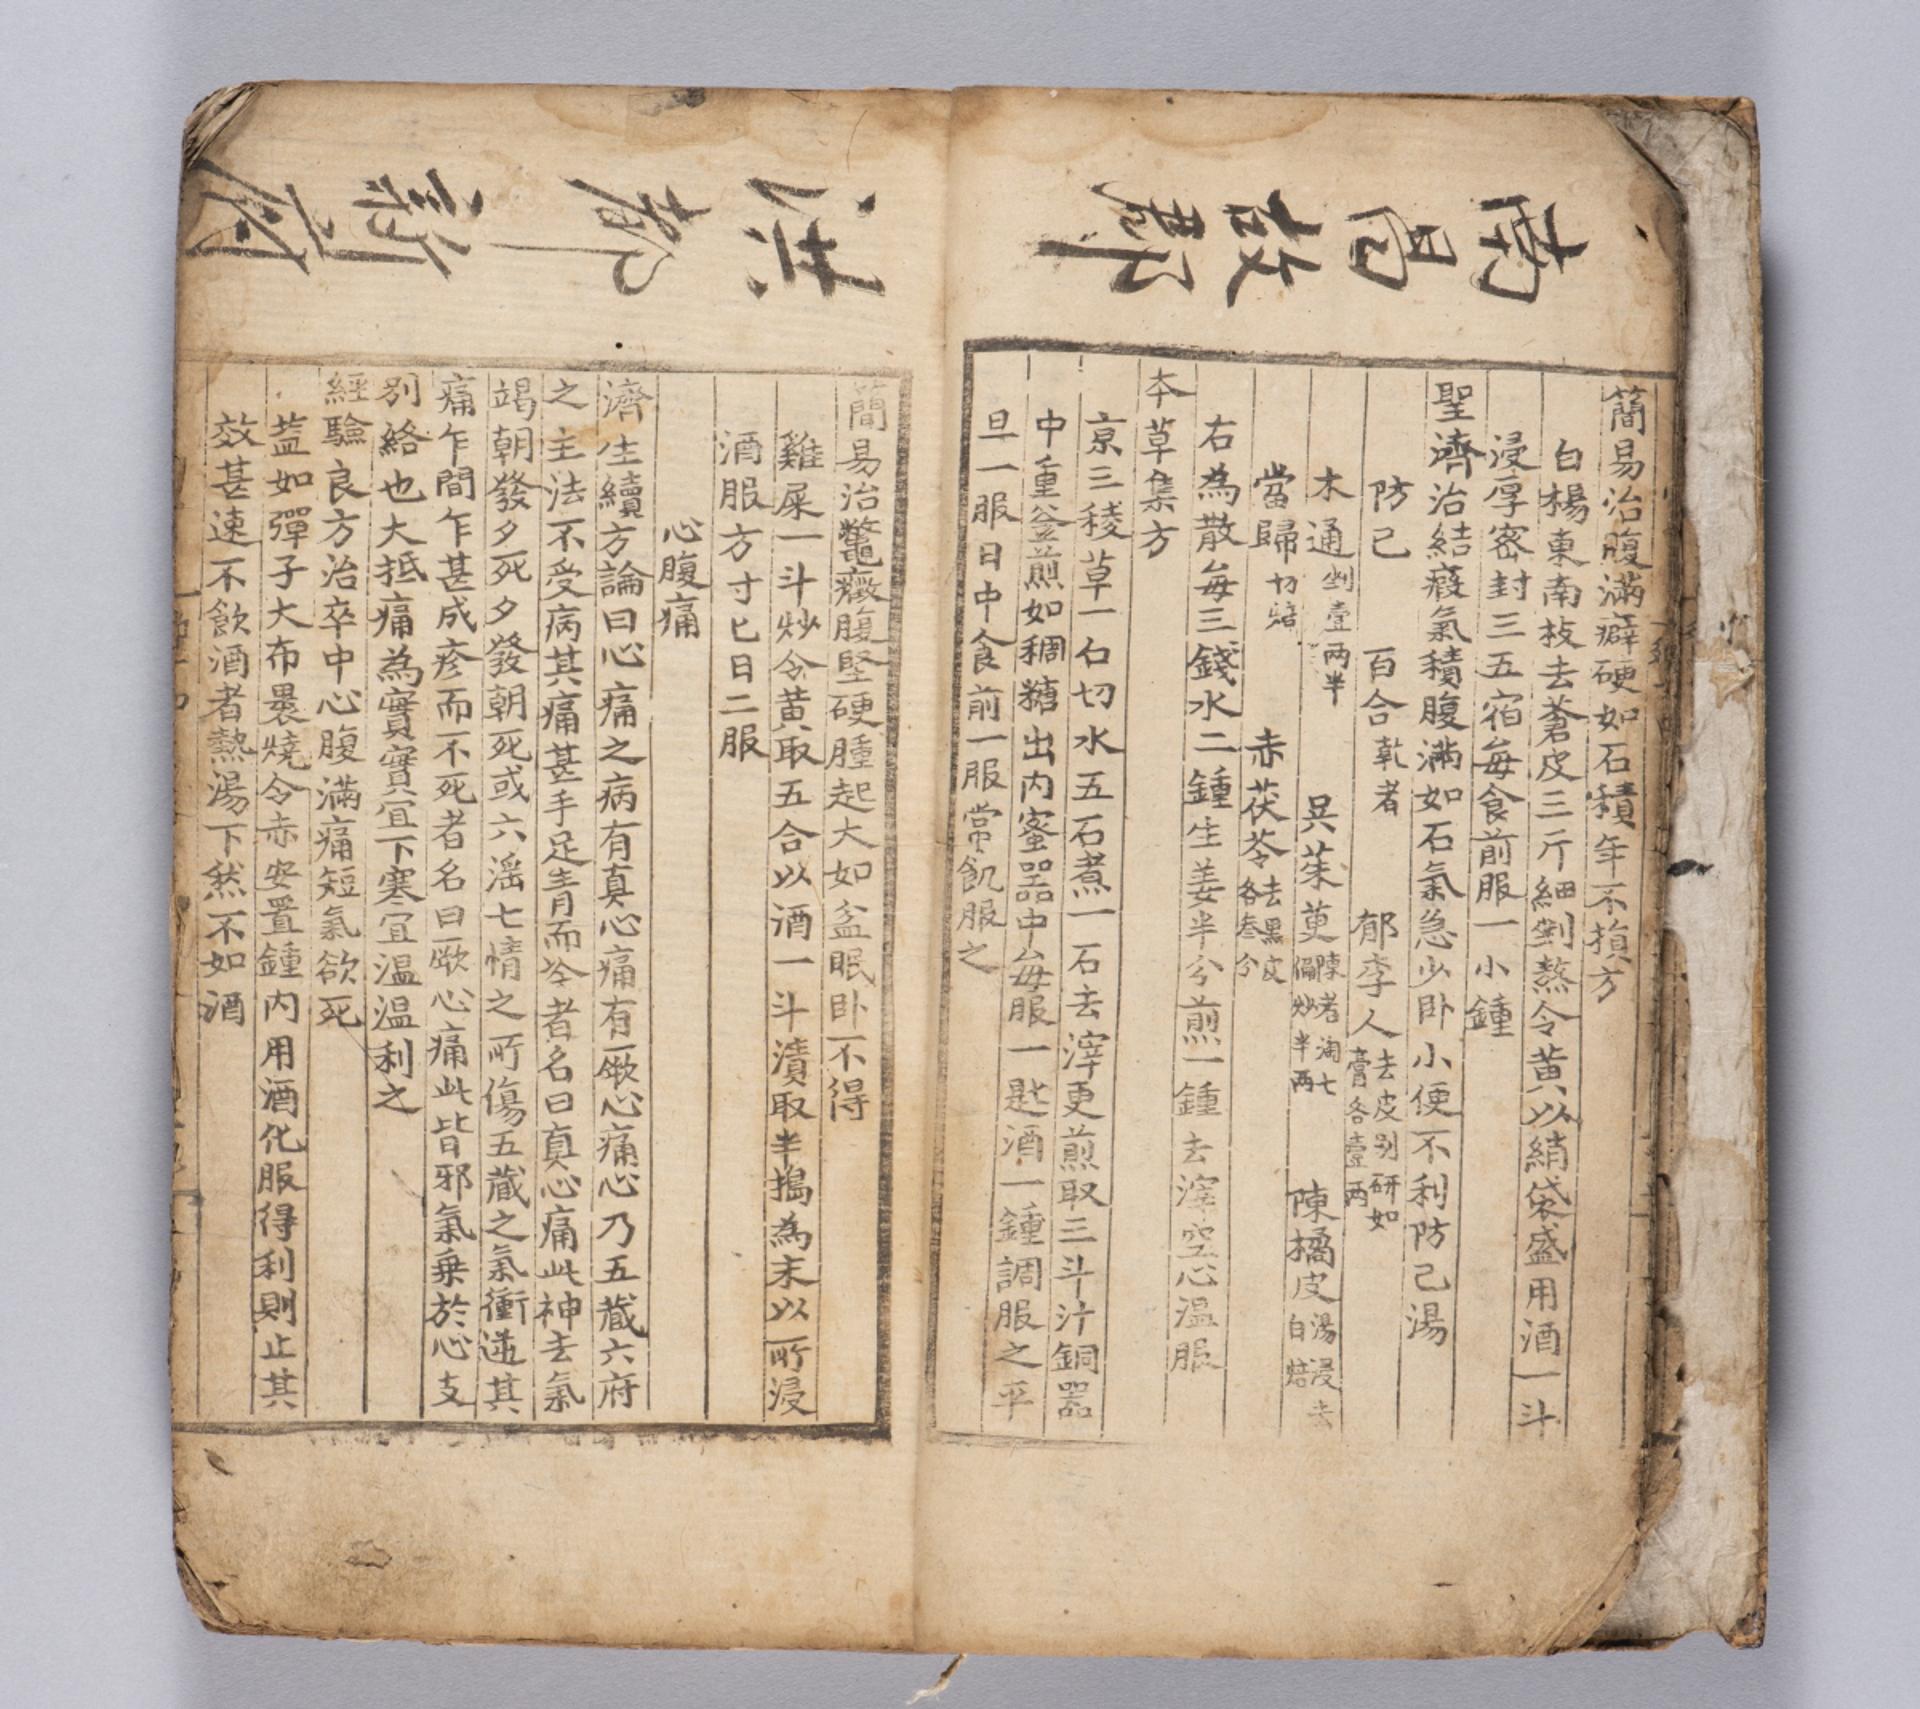 南昌故郡
洪都新府
簡易治腹滿癖硬如石積年不損方
白楊東南枝去蒼皮三斤細剉熬令黃以絹袋盛用酒一斗
浸厚密封三五宿每食前服一小鍾
聖濟治結癥氣積腹滿如石氣急少卧小便不利防己湯
防己 百合乾者 郁李人去皮別研如膏各壹兩
木通剉壹兩半 吳茱萸陳者淘七徧炒半兩 陳橘皮湯浸去白焙
當歸切焙 赤茯苓去黑皮各叁分
右為散每三錢水二鍾生姜半分煎一鍾去滓空心温服
本草集方
京三稜草一石切水五石煮一石去滓更煎取三斗汁銅器
中重釜煎如稠糖出内蜜器中每服一匙酒一鍾調服之平
旦一服日中食前一服常飢服之
簡易治鼈癥腹堅硬腫起大如盆眠卧不得
雞屎一斗炒令黃取五合以酒一斗漬取半搗為末以所浸
酒服方寸匕日二服
心腹痛
濟生續方論曰心痛之病有真心痛有厥心痛心乃五藏六府
之主法不受病其痛甚手足青而冷者名曰真心痛此神去氣
竭朝發夕死夕發朝死或六淫七情之所傷五藏之氣衝逆其
痛乍間乍甚成疹而不死者名曰厥心痛此皆邪氣乗於心支
別絡也大抵痛為實實宜下寒宜温温利之
經驗良方治卒中心腹滿痛短氣欲死
盐如彈子大布褁燒令赤安置鍾内用酒化服得利則止其
效甚速不飲酒者熱湯下然不如酒